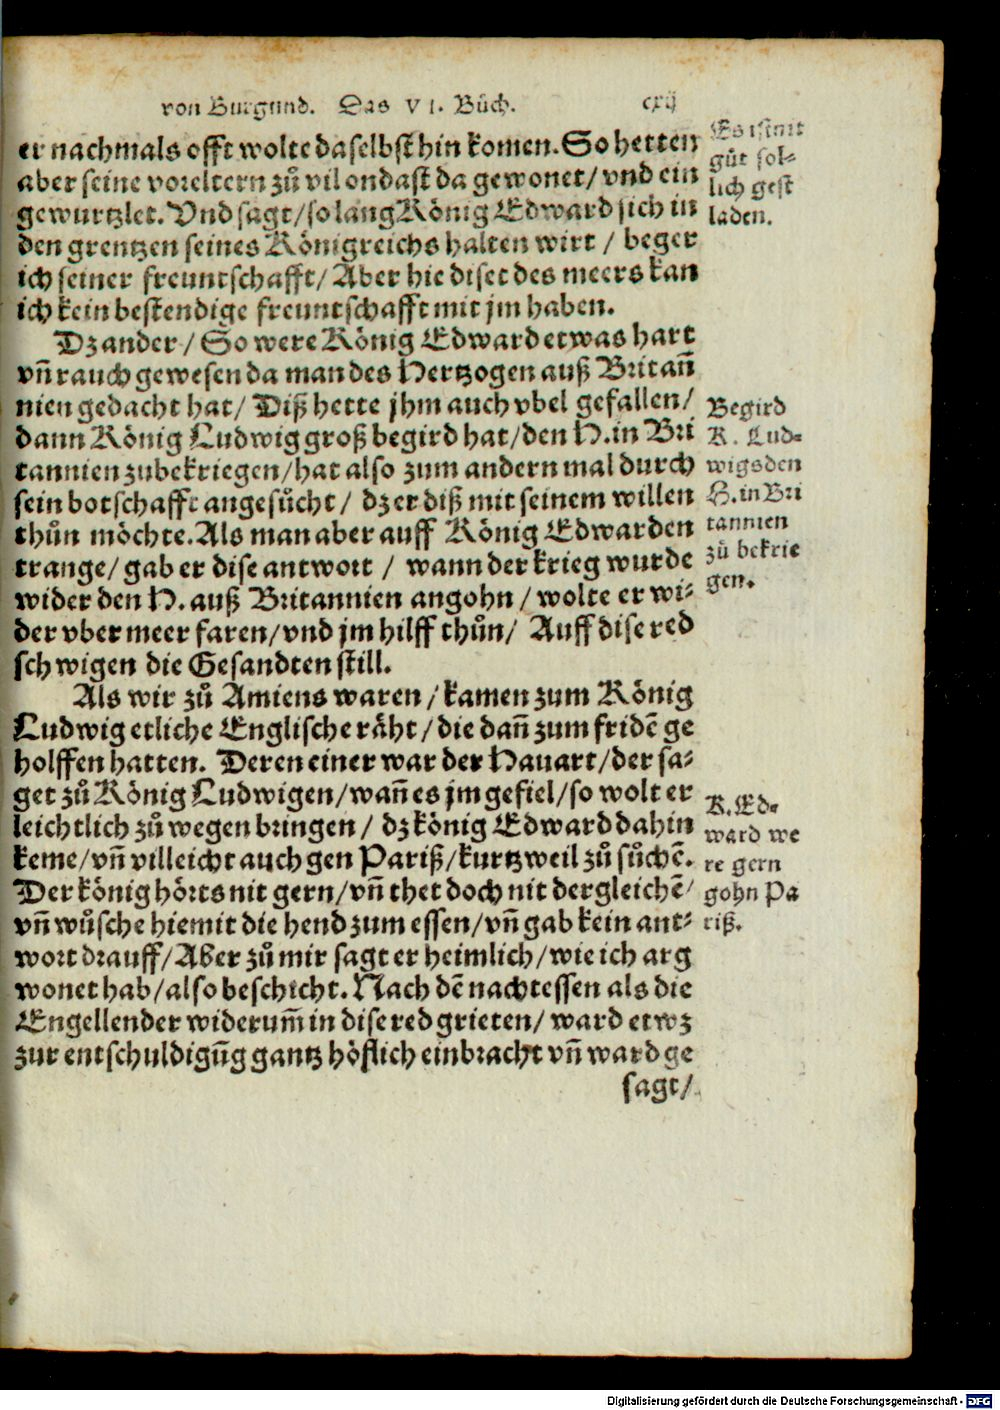 von Burgund. Das VI. Bůch. cxij
er nachmals offt wolte daselbst hin komen. So hetten
aber seine voreltern zů vil ondast da gewonet/ vnd ein
gewurtzlet. Vnd sagt/ so lang König Edward sich in
den grentzen seines Königreichs halten wirt / beger
ich seiner freuntschafft/ Aber hie diset des meers kan
ich kein bestendige freuntschafft mit jm haben.
Dz ander/ So were König Edward etwas hart
vñ rauch gewesen da man des Hertzogen auß Britañ
nien gedacht hat/ Diß hette jhm auch vbel gefallen/
dann König Ludwig groß begird hat/ den H. in Bri
tannien zubekriegen/ hat also zum andern mal durch
sein botschafft angesůcht/ dz er diß mit seinem willen
thůn möchte. Als man aber auff König Edwarden
trange/ gab er dise antwort / wann der krieg wurde
wider den H. auß Britannien angohn/ wolte er wi⸗
der vber meer faren/ vnd jm hilff thůn/ Auff dise red
schwigen die Gesandten still.
Als wir zů Amiens waren/ kamen zum König
Ludwig etliche Englische räht/ die dañ zum fridē ge
holffen hatten. Deren einer war der Hauart/ der sa⸗
get zů König Ludwigen/ wañ es jm gefiel/ so wolt er
leichtlich zů wegen bringen/ dz könig Edward dahin
keme/ vñ villeicht auch gen Pariß/ kurtzweil zů sůchē.
Der könig hörts nit gern/ vñ thet doch nit dergleichē/
vñ wůsche hiemit die hend zum essen/ vñ gab kein ant⸗
wort drauff/ Aber zů mir sagt er heimlich/ wie ich arg
wonet hab/ also beschicht. Nach dē nachtessen als die
Engellender widerum̃ in dise red grieten/ ward etwz
zur entschuldigũg gantz höflich einbracht vñ ward ge
sagt/
Es ist nit
gůt sol⸗
lich gest
laden.
Begird
K. Lud⸗
wigs den
H. in Bri
tannien
zů bekrie
gen.
K. Ed⸗
ward we
re gern
gohn Pa
riß.
Digitalisierung gefördert durch die Deutsche Forschungsgemeinschaft - DFG